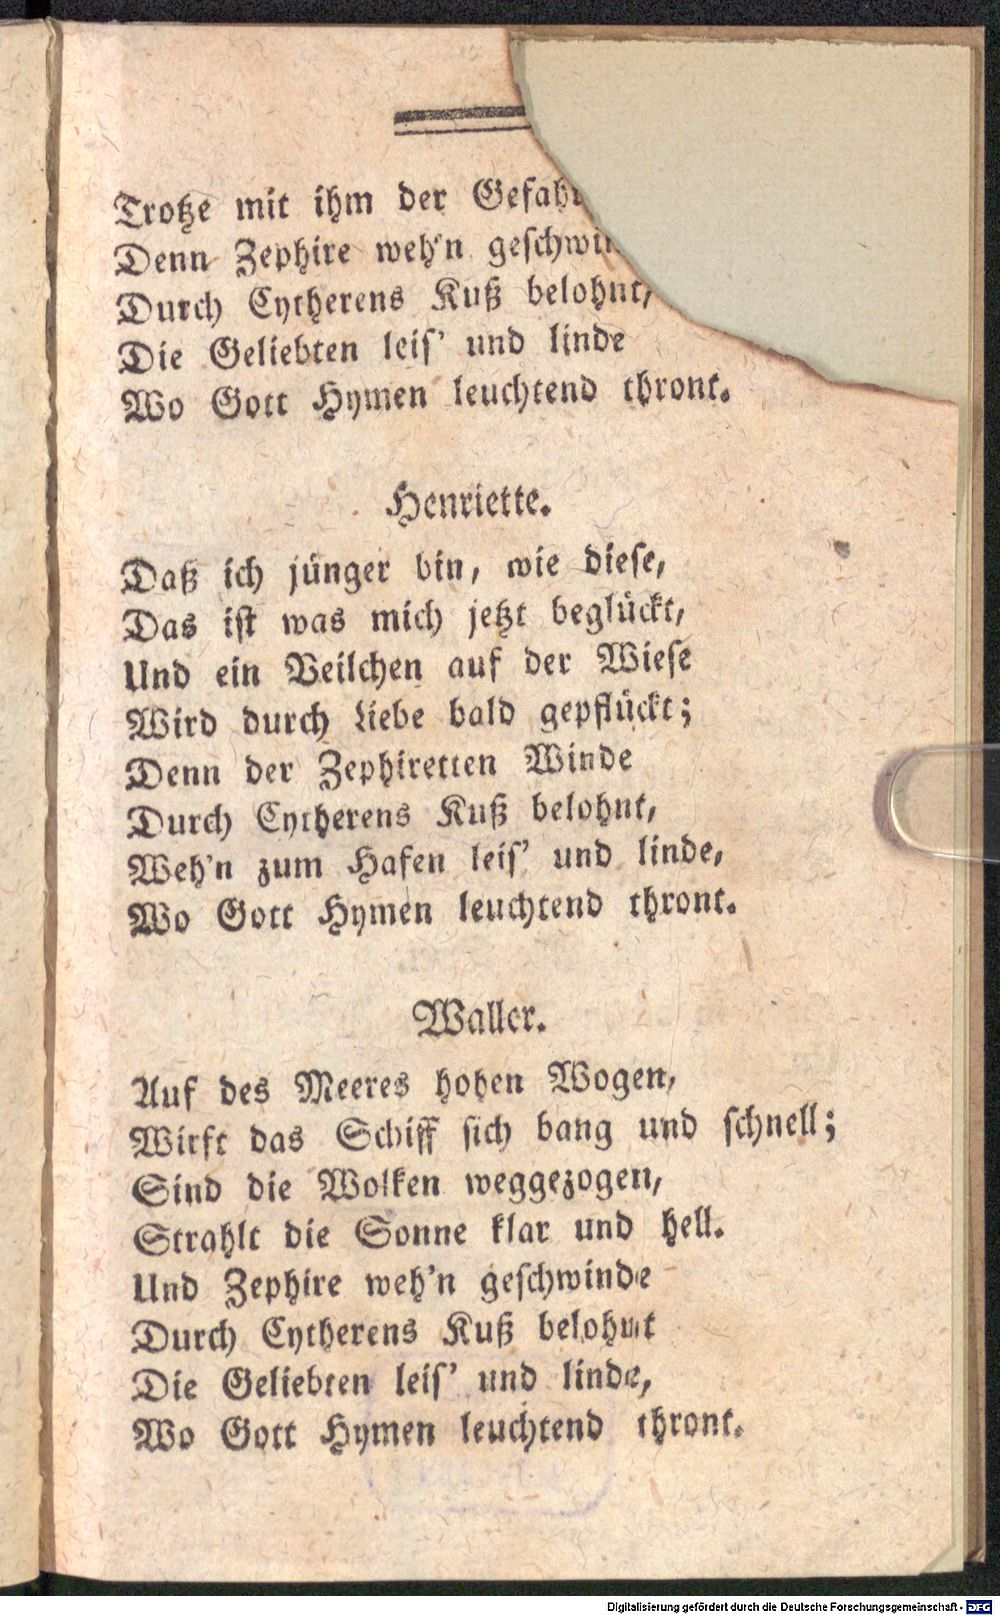 Trotze mit ihm der
Denn Zephire weh'n
Durch Cytherens Kuß belohnt,
Die Geliebten leis' und linde
Wo Gott Hymen leuchtend thront.
Henriette.
Daß ich jünger bin, wie diese,
Das ist was mich jetzt beglückt,
Und ein Veilchen auf der Wiese
Wird durch Liebe bald gepflückt;
Denn der Zephiretten Winde
Durch Cytherens Kuß belohnt,
Weh'n zum Hafen leis' und linde,
Wo Gott Hymen leuchtend thront.
Waller.
Auf des Meeres hohen Wogen,
Wirft das Schiff sich bang und schnell;
Sind die Wolken weggezogen,
Strahlt die Sonne klar und hell.
Und Zephire weh'n geschwinde
Durch Cytherens Kuß belohnt
Die Geliebten leis' und linde,
Wo Gott Hymen leuchtend thront.
Digitalisierung gefördert durch die Deutsche Forschungsgemeinschaft - DFG